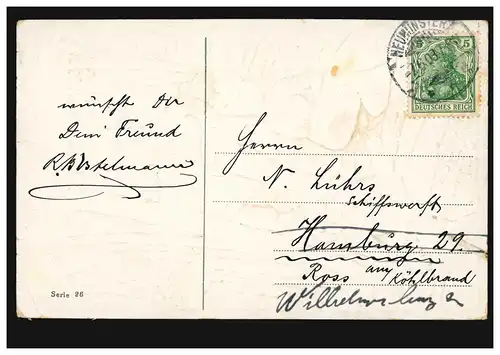 NEUMÜNSTER
5
DEUTSCHES REICH
wünscht Dir
Dein Freund
Herrn
N. Lührs
Schiffswerft
Hamburg 29.
Ross am Köhlbrand
Serie 26